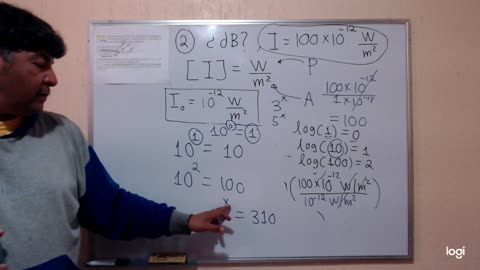 ② ¿dB?
I = 100×10⁻¹² W/m²
[I] = W/m²
P
A
I₀ = 10⁻¹² W/m²
3ˣ
5ˣ
100×10⁻¹²
1×10⁻¹²
= 100
10⁰ = 1
10¹ = 10
10² = 100
x = 310
log(1) = 0
log(10) = 1
log(100) = 2
(100×10⁻¹² W/m² / 10⁻¹² W/m²)
logi